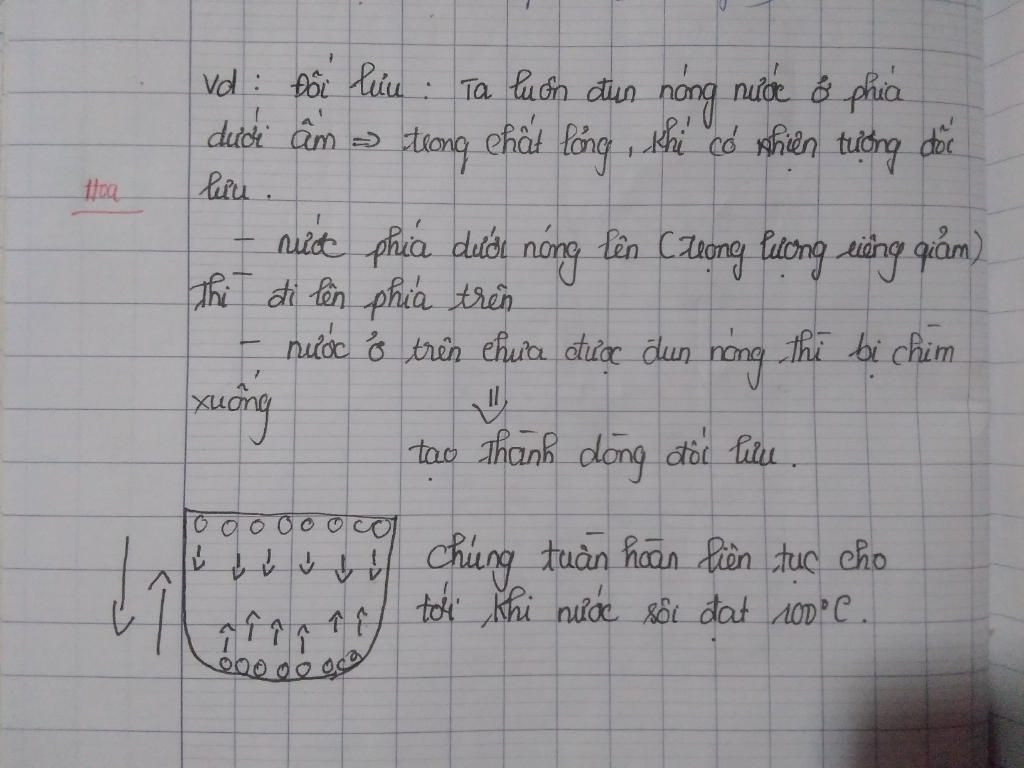 Vd : Đối lưu : Ta luôn đun nóng nước ở phía
dưới ấm => trong chất lỏng, khí có hiện tượng đối
Hoa
lưu.
- nước phía dưới nóng lên (trọng lượng riêng giảm)
thì đi lên phía trên
- nước ở trên chưa được đun nóng thì bị chìm
xuống
tạo thành dòng đối lưu.
Chúng tuần hoàn liên tục cho
tới khi nước sôi đạt 100°C.